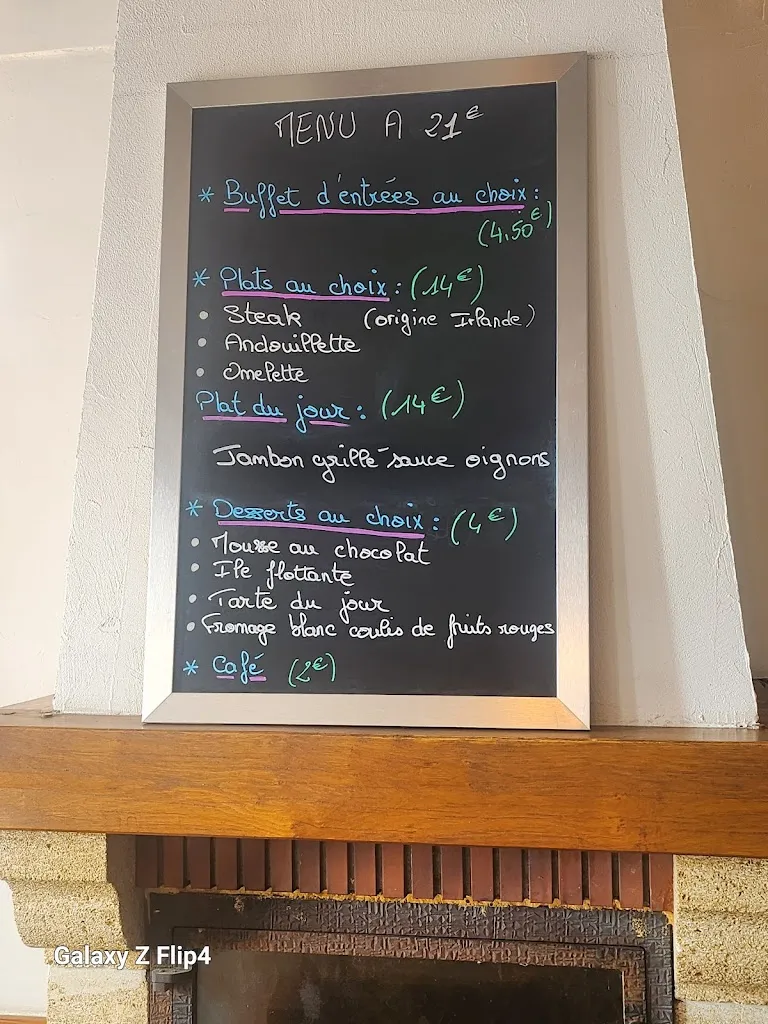 MENU A 21€
* Buffet d'entrées au choix :
(4,50€)
* Plats au choix : (14€)
• Steak (origine Irlande)
• Andouillette
• Omelette
Plat du jour : (14€)
Jambon grillé sauce oignons
* Desserts au choix : (4€)
• Mousse au chocolat
• Ile flottante
• Tarte du jour
• Fromage blanc coulis de fruits rouges
* Café (2€)
Galaxy Z Flip4